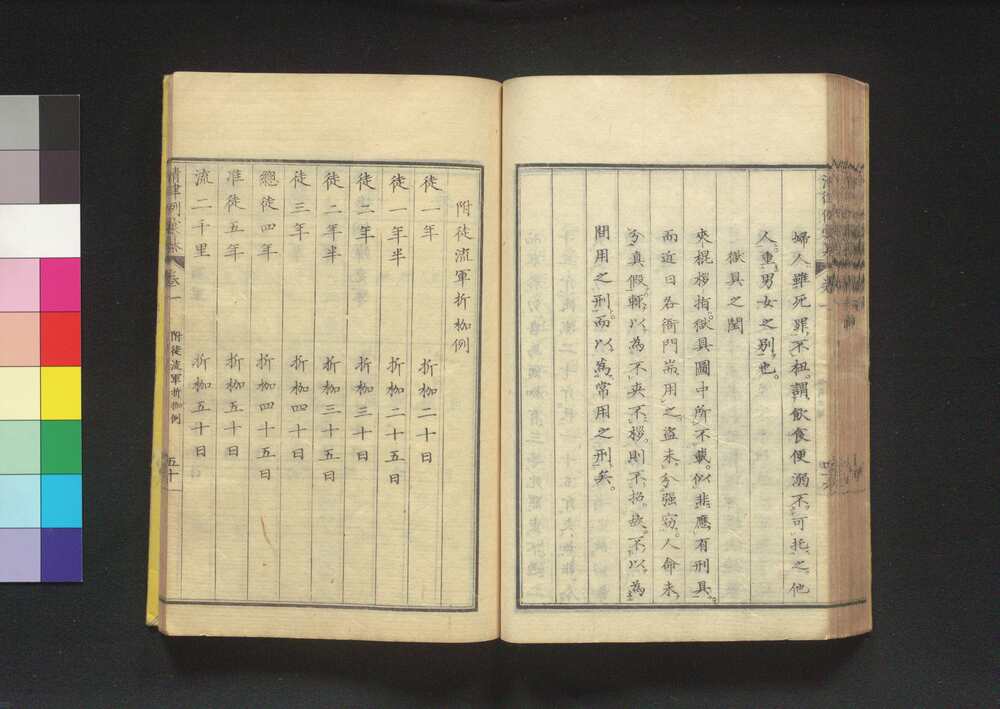 婦人雖死罪不杻謂飲食便溺不可托之他
人重男女之别也。
獄具之圖
夾棍拶指獄具圖中所不載。似非應有刑具。
而近日各衙門耑用之。盗未分强窃。人命未
分真假輒以為不夾不拶。則不招。故不以為
間用之刑。而以為常用之刑矣。
附徒流軍折枷例
徒一年　折枷二十日
徒一年半　折枷二十五日
徒二年　折枷三十日
徒二年半　折枷三十五日
徒三年　折枷四十日
總徒四年　折枷四十五日
准徒五年　折枷五十日
流二千里　折枷五十日
卷一　附徒流軍折枷例　五十